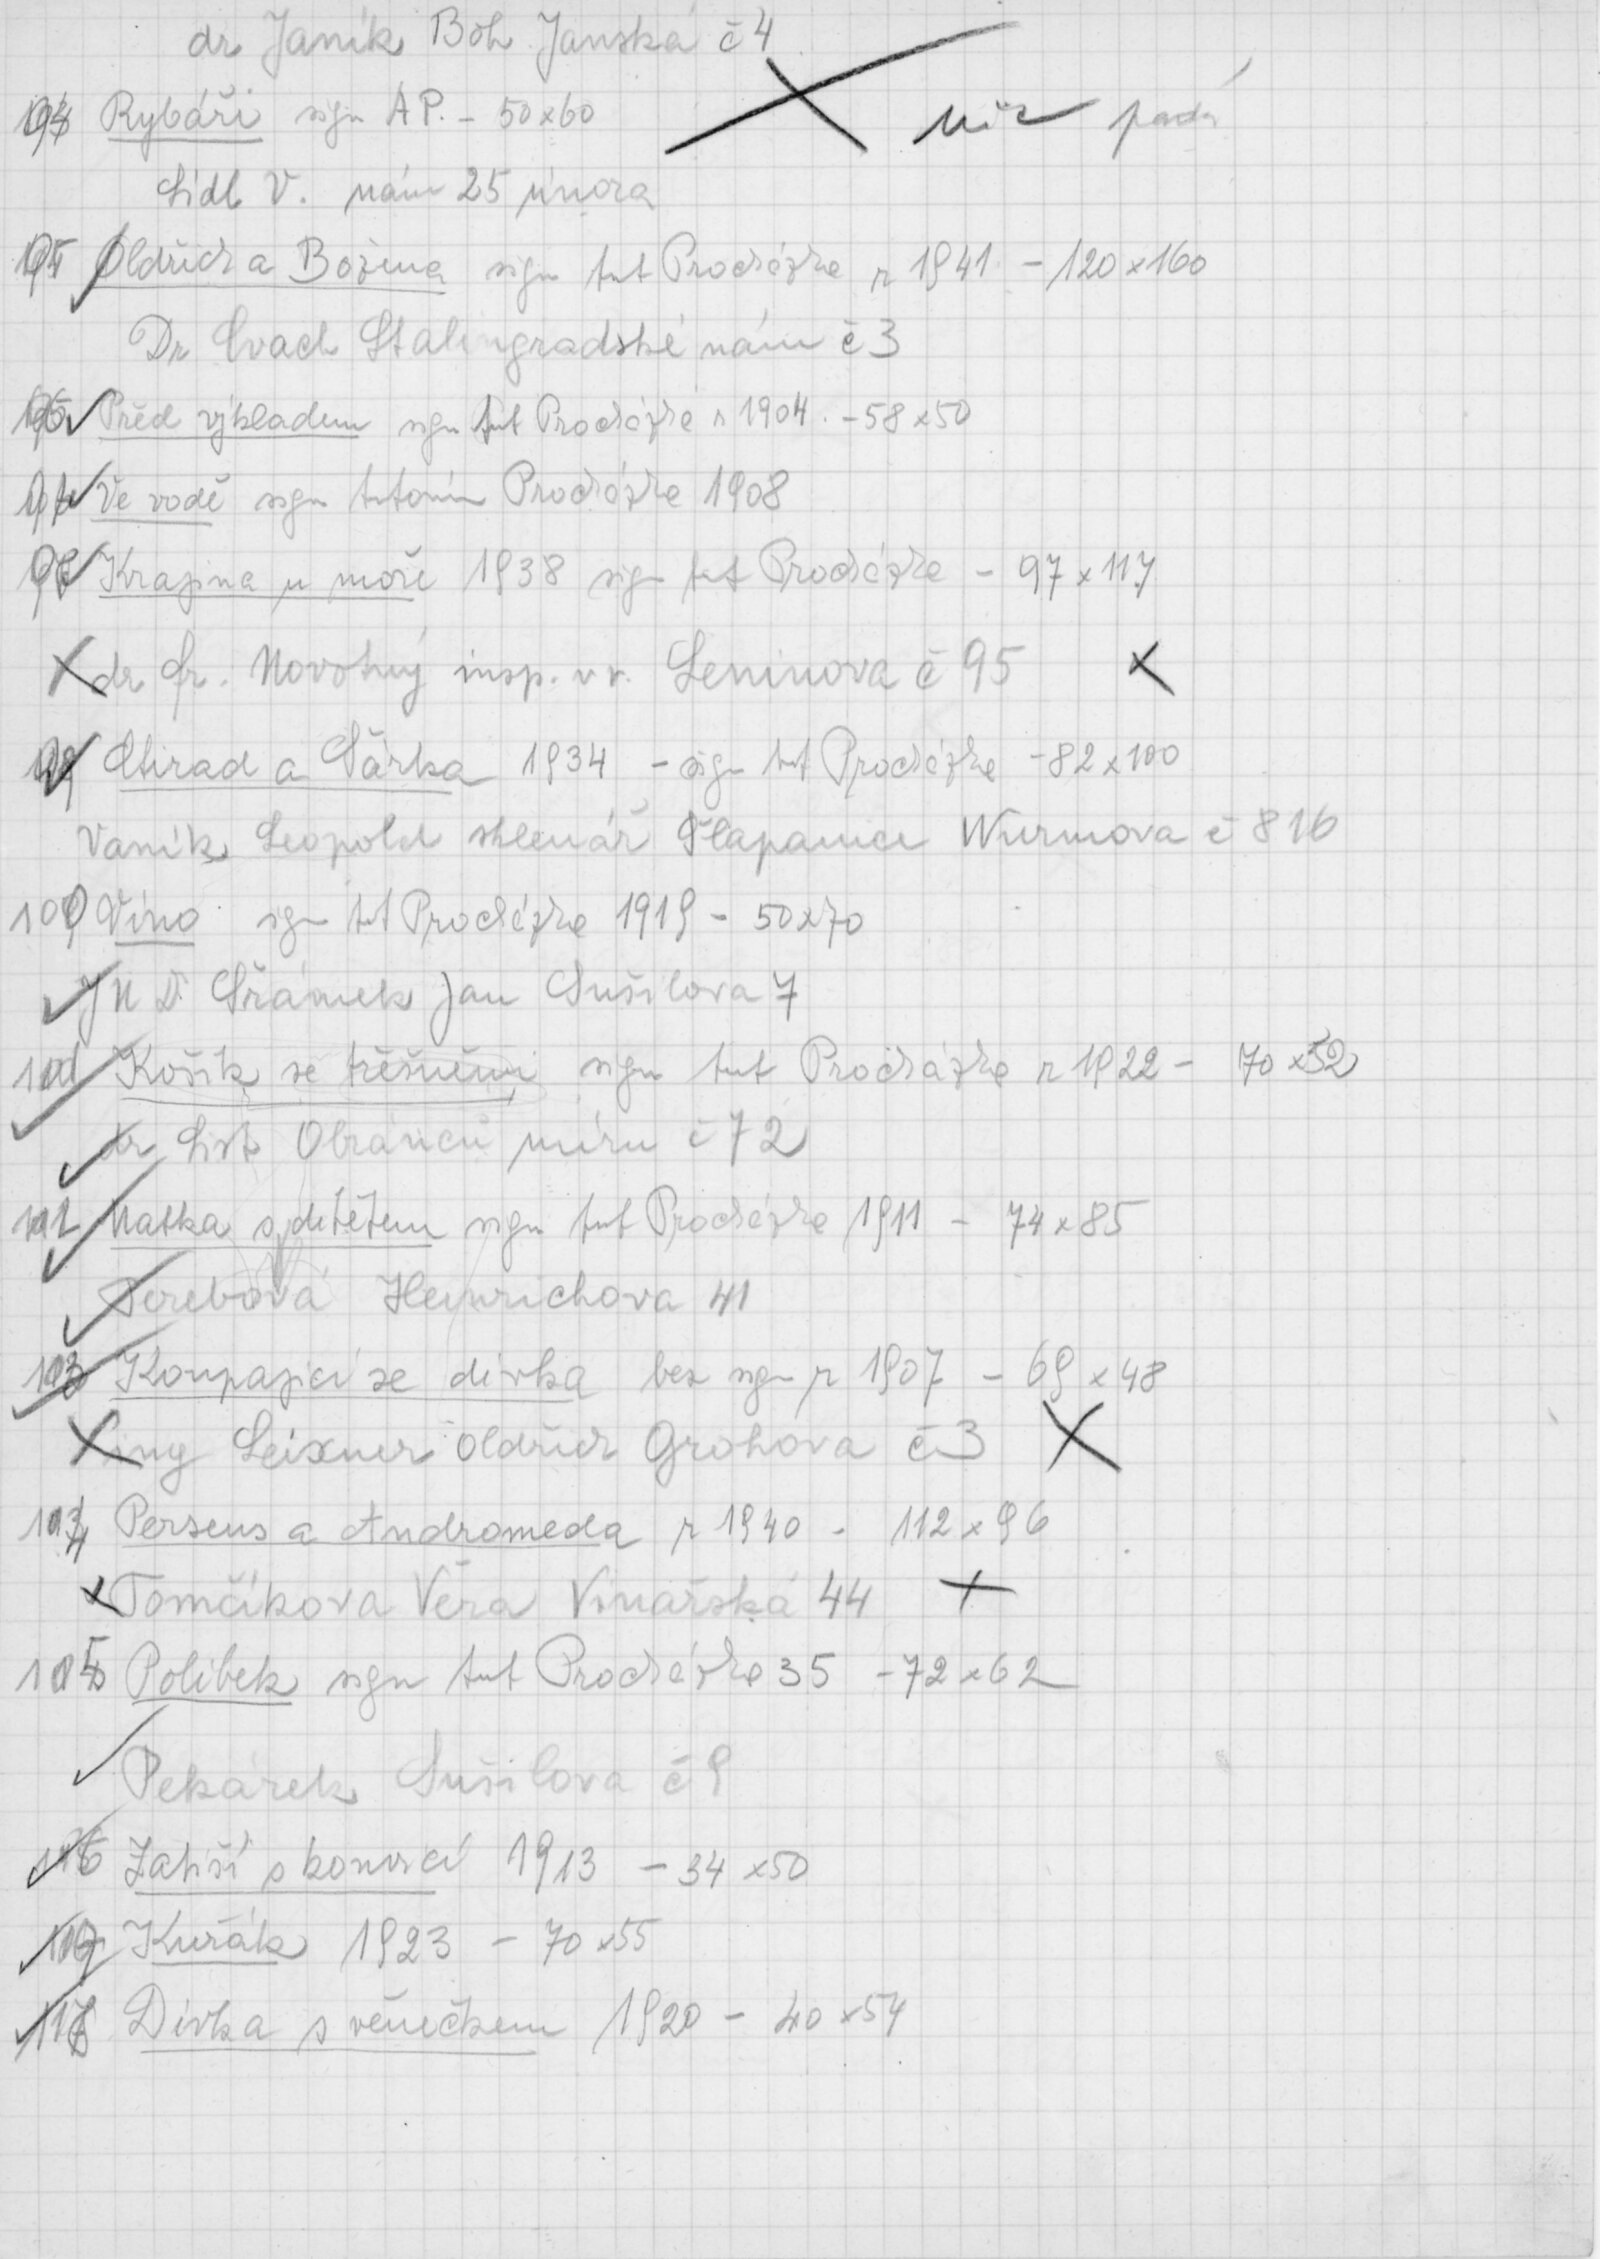 dr Janík Boh Janská č 4
94 Rybáři sign AP. - 50x60 níže padá
Lidl V. nám 25 února
95 Oldřich a Božena sign Ant Procházka r 1941 - 120x160
Dr Cvach Stalingradské nám č 3
96 Před výkladem sign Ant Procházka r 1904 - 58x50
97 Ve vodě sign Antonín Procházka 1908
98 Krajina u moře 1938 sign Ant Procházka - 97x117
dr Fr. Novotný insp. v v. Leninova č 95
99 Ctirad a Šárka 1934 - sign Ant Procházka - 82x100
Vaník Leopold sklenář Šlapanice Wurmova č 816
100 Víno sign Ant Procházka 1919 - 50x70
JUDr Šrámek Jan Sušilova 7
101 Košík se třešněmi sign Ant Procházka r 1922 - 70x52
dr List Obránců míru č 72
102 Matka s dítětem sign Ant Procházka 1911 - 74x85
Heinrichova 41
103 Koupající se dívka bez sign r 1907 - 69x48
ing Leixner Oldřich Grohova č 3
104 Perseus a Andromeda r 1940 - 112x96
Tomčíkova Věra Vinařská 44
105 Polibek sign Ant Procházka 35 - 72x62
Pekárek Sušilova č 9
106 Zátiší s konvicí 1913 - 34x50
117 Kuřák 1923 - 70x55
118 Dívka s věnečkem 1920 - 40x54